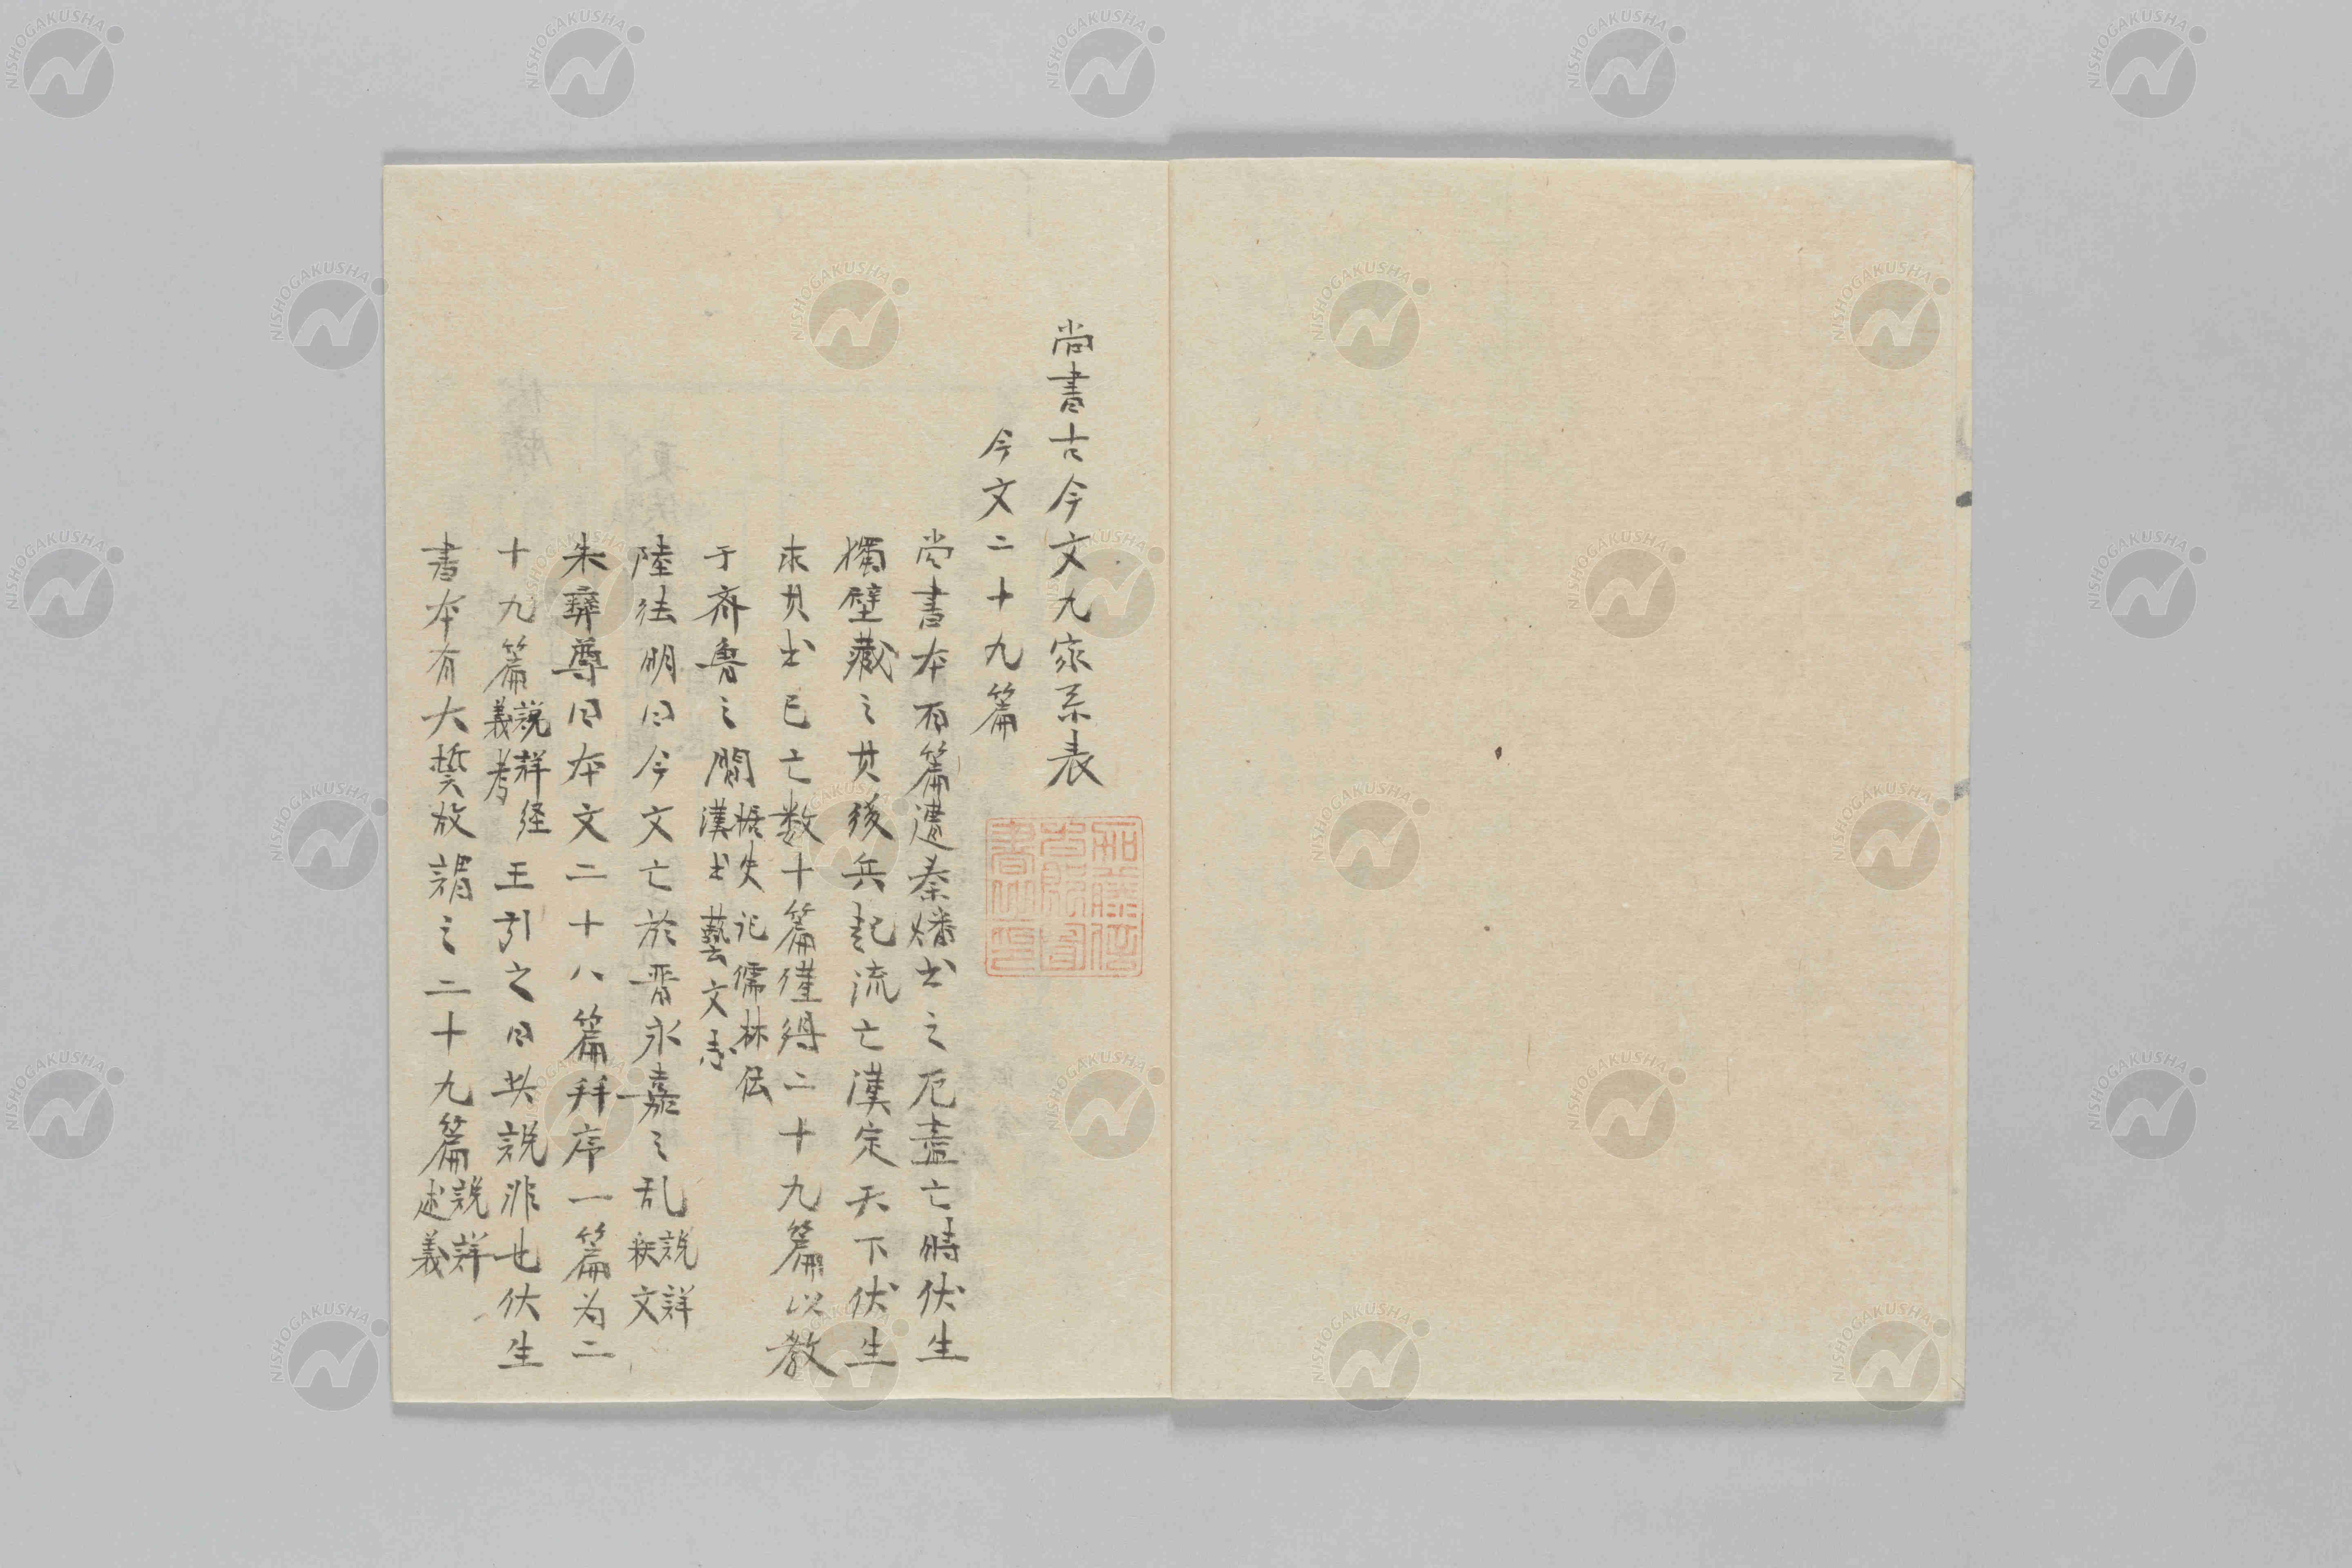 尚書古今文九家系表
今文二十九篇
尚書本百篇遭秦燔书之厄盡亡時伏生
獨壁藏之其後兵起流亡漢定天下伏生
求其书已亡数十篇僅得二十九篇以教
于齐魯之間据史记儒林伝漢书藝文志
陸徳明曰今文亡於晋永嘉之乱説詳釈文
朱彝尊曰本文二十八篇并序一篇为二
十九篇説詳経義考王引之曰其説非也伏生
書本有大誓故謂之二十九篇説詳述義
NISHOGAKUSHA